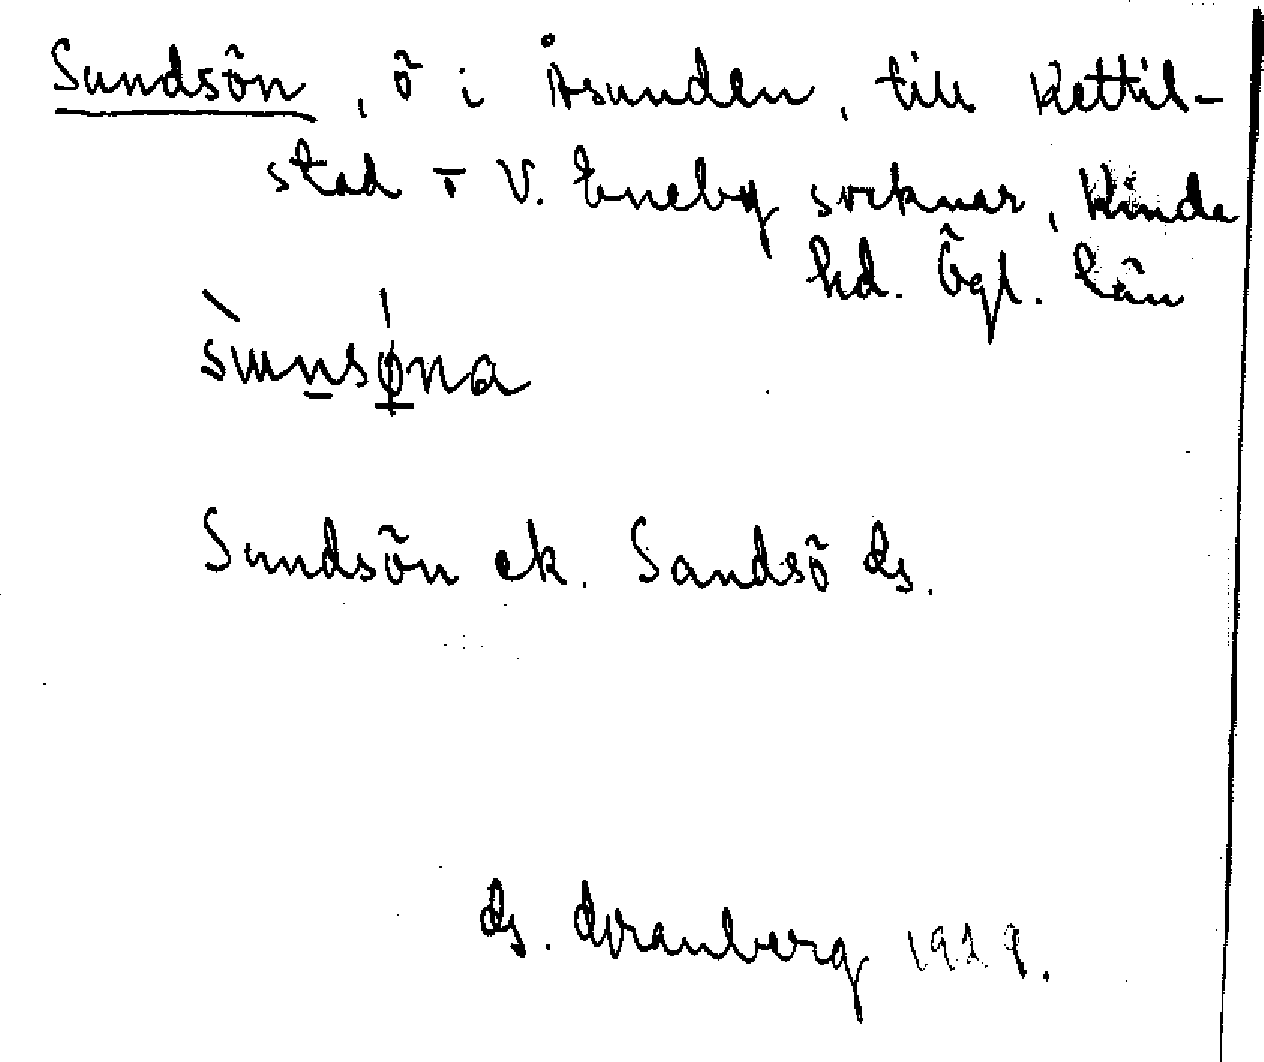 Sundsön, ö i Åsunden, till Kettil-
stad o V. Eneby socknar, Kinda
hd. Ögl. län
Sundsön ek. Sandsö
Granberg 1929.